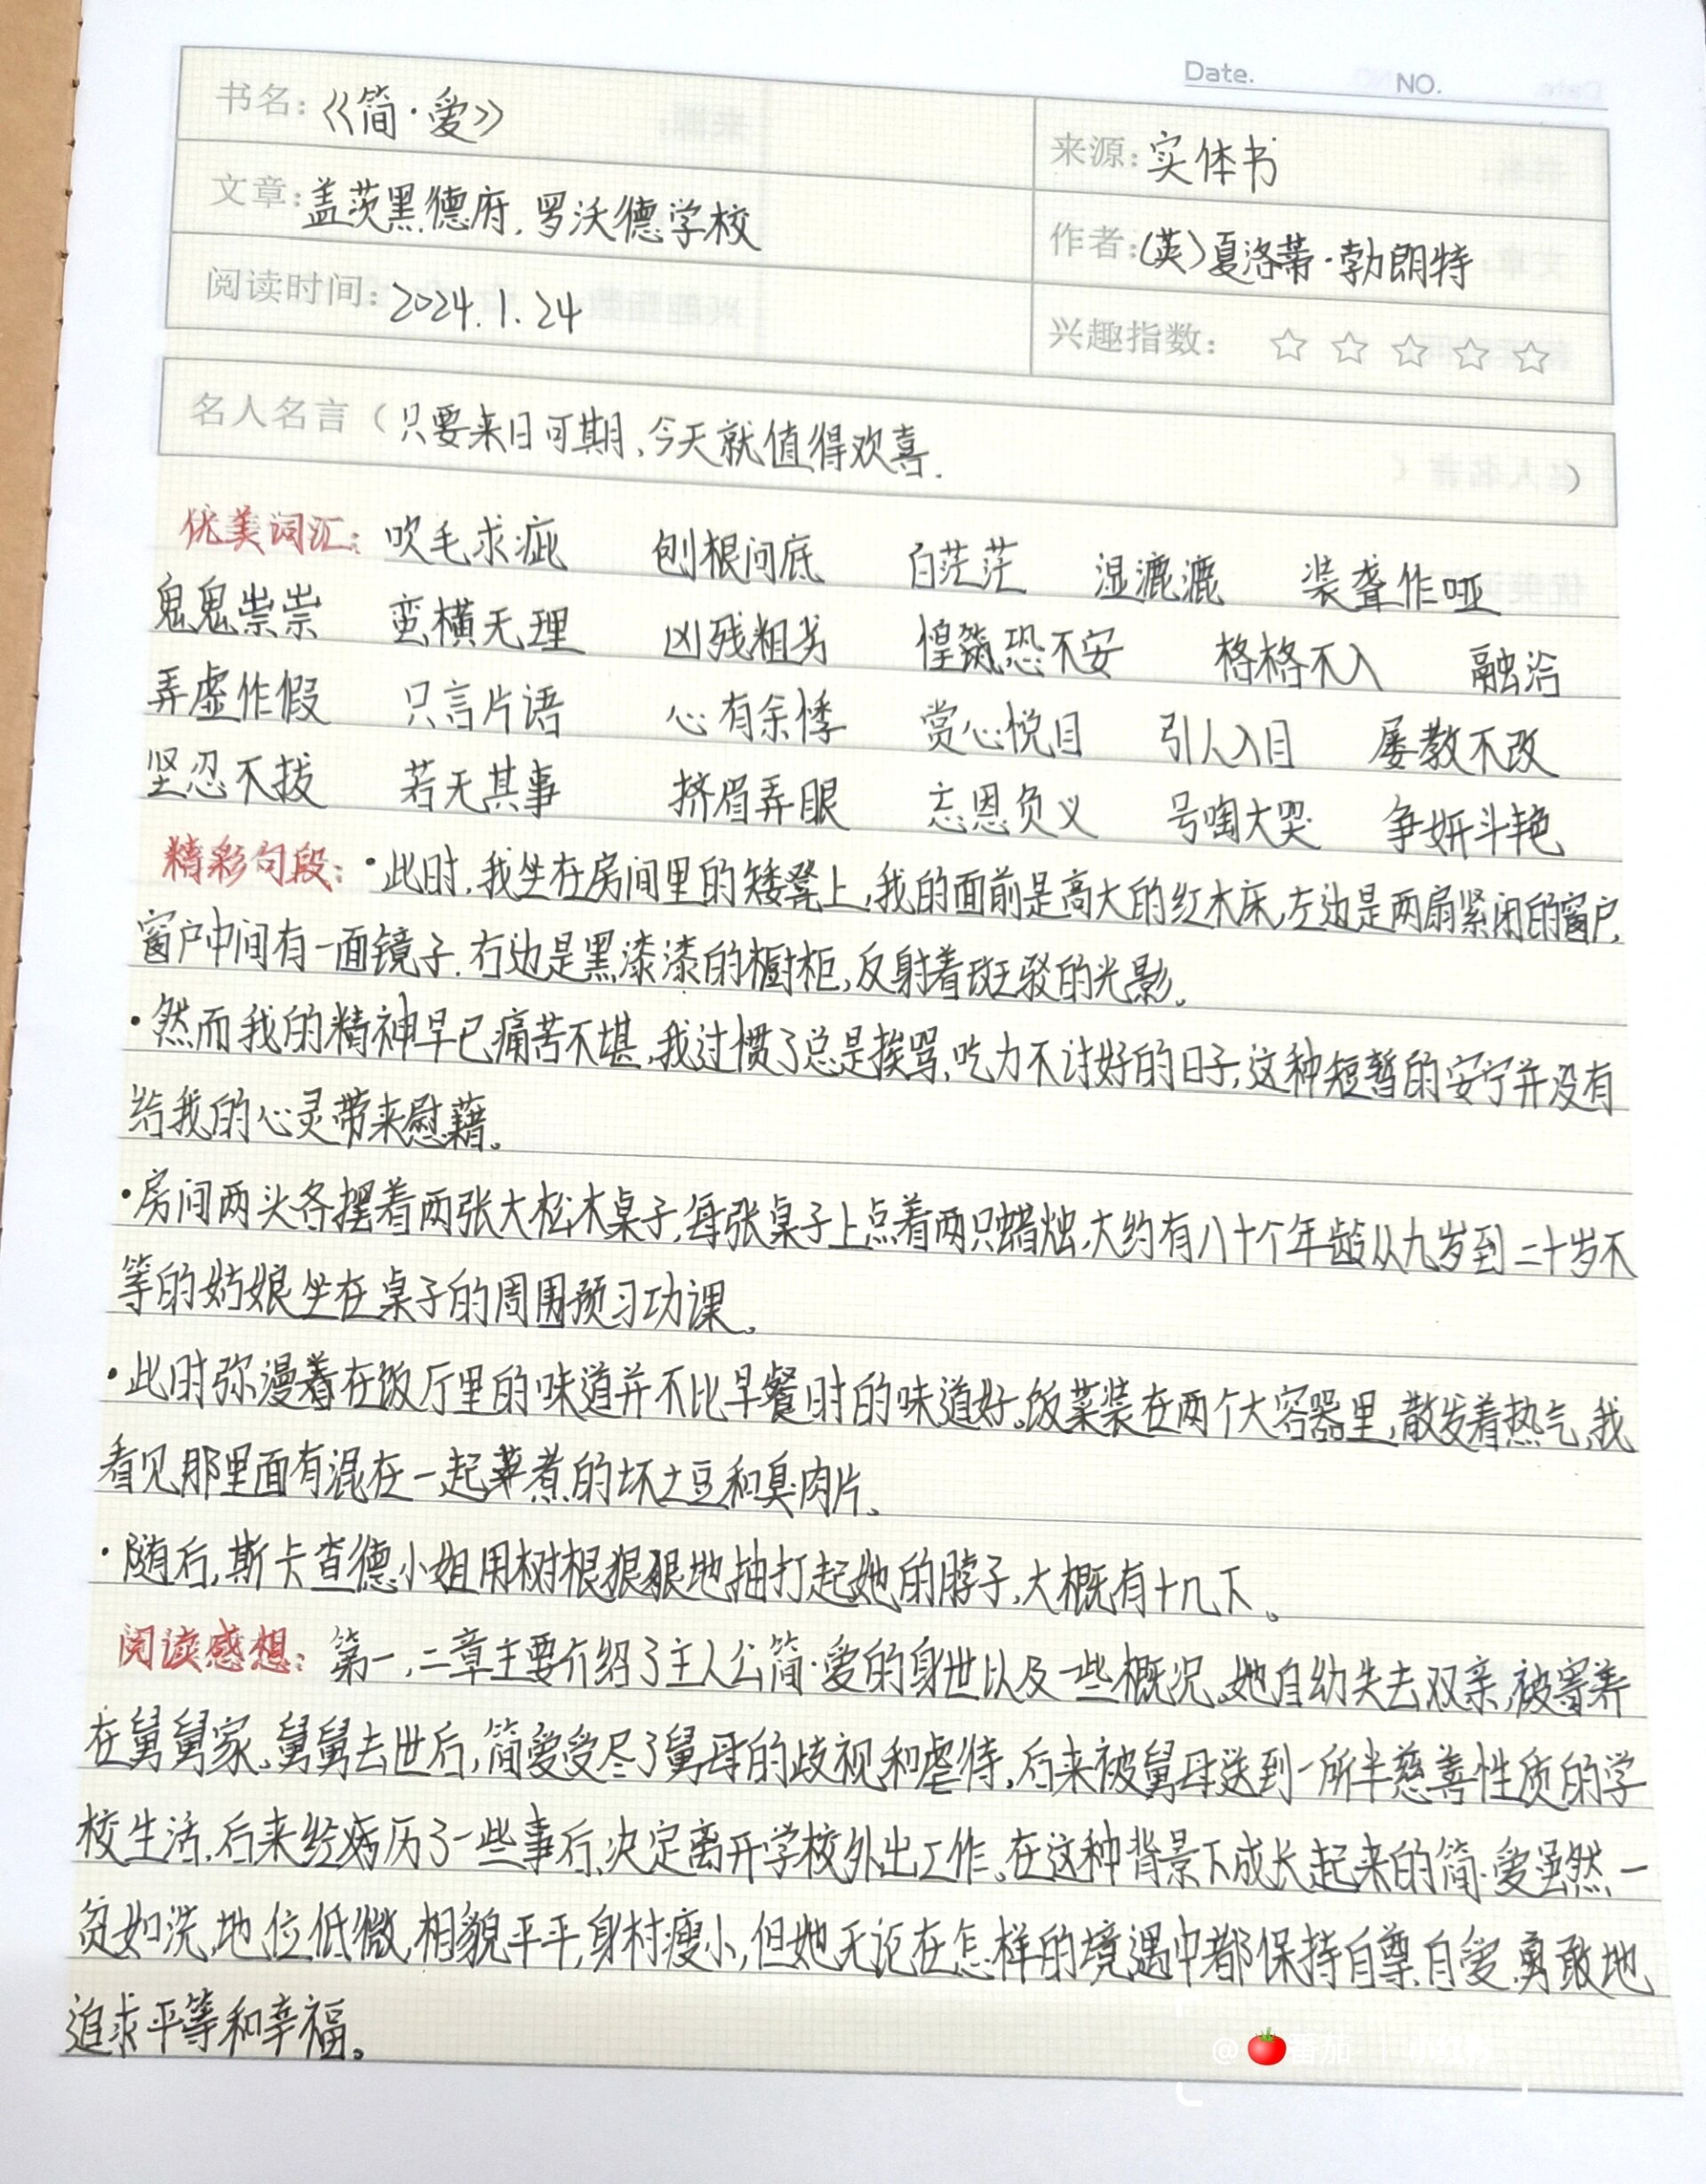 Date. NO.
书名：《简·爱》 来源：实体书
文章：盖茨黑德府.罗沃德学校 作者：(英)夏洛蒂·勃朗特
阅读时间：2024.1.24 兴趣指数：☆☆☆☆☆
名人名言（只要来日可期、今天就值得欢喜.）
优美词汇：吹毛求疵 刨根问底 白茫茫 湿漉漉 装聋作哑
鬼鬼祟祟 蛮横无理 凶残粗劣 惶恐不安 格格不入 融洽
弄虚作假 只言片语 心有余悸 赏心悦目 引人入目 屡教不改
坚忍不拔 若无其事 挤眉弄眼 忘恩负义 号啕大哭 争妍斗艳
精彩句段：·此时,我坐在房间里的矮凳上,我的面前是高大的红木床,左边是两扇紧闭的窗户,
窗户中间有一面镜子.右边是黑漆漆的橱柜,反射着斑驳的光影。
·然而我的精神早已痛苦不堪,我过惯了总是挨骂,吃力不讨好的日子,这种短暂的安宁并没有
给我的心灵带来慰藉。
·房间两头各摆着两张大松木桌子,每张桌子上点着两只蜡烛,大约有八十个年龄从九岁到二十岁不
等的姑娘坐在桌子的周围预习功课。
·此时弥漫着在饭厅里的味道并不比早餐时的味道好。饭菜装在两个大容器里,散发着热气,我
看见那里面有混在一起煮的坏土豆和臭肉片。
·随后,斯卡查德小姐用树根狠狠地抽打起她的脖子,大概有十几下。
阅读感想：第一,二章主要介绍了主人公简·爱的身世以及一些概况。她自幼失去双亲,被寄养
在舅舅家。舅舅去世后,简爱受尽了舅母的歧视和虐待,后来被舅母送到一所半慈善性质的学
校生活.后来经历了一些事后,决定离开学校外出工作。在这种背景下成长起来的简·爱虽然一
贫如洗,地位低微,相貌平平,身材瘦小,但她无论在怎样的境遇中都保持自尊自爱,勇敢地
追求平等和幸福。
@🍅番茄